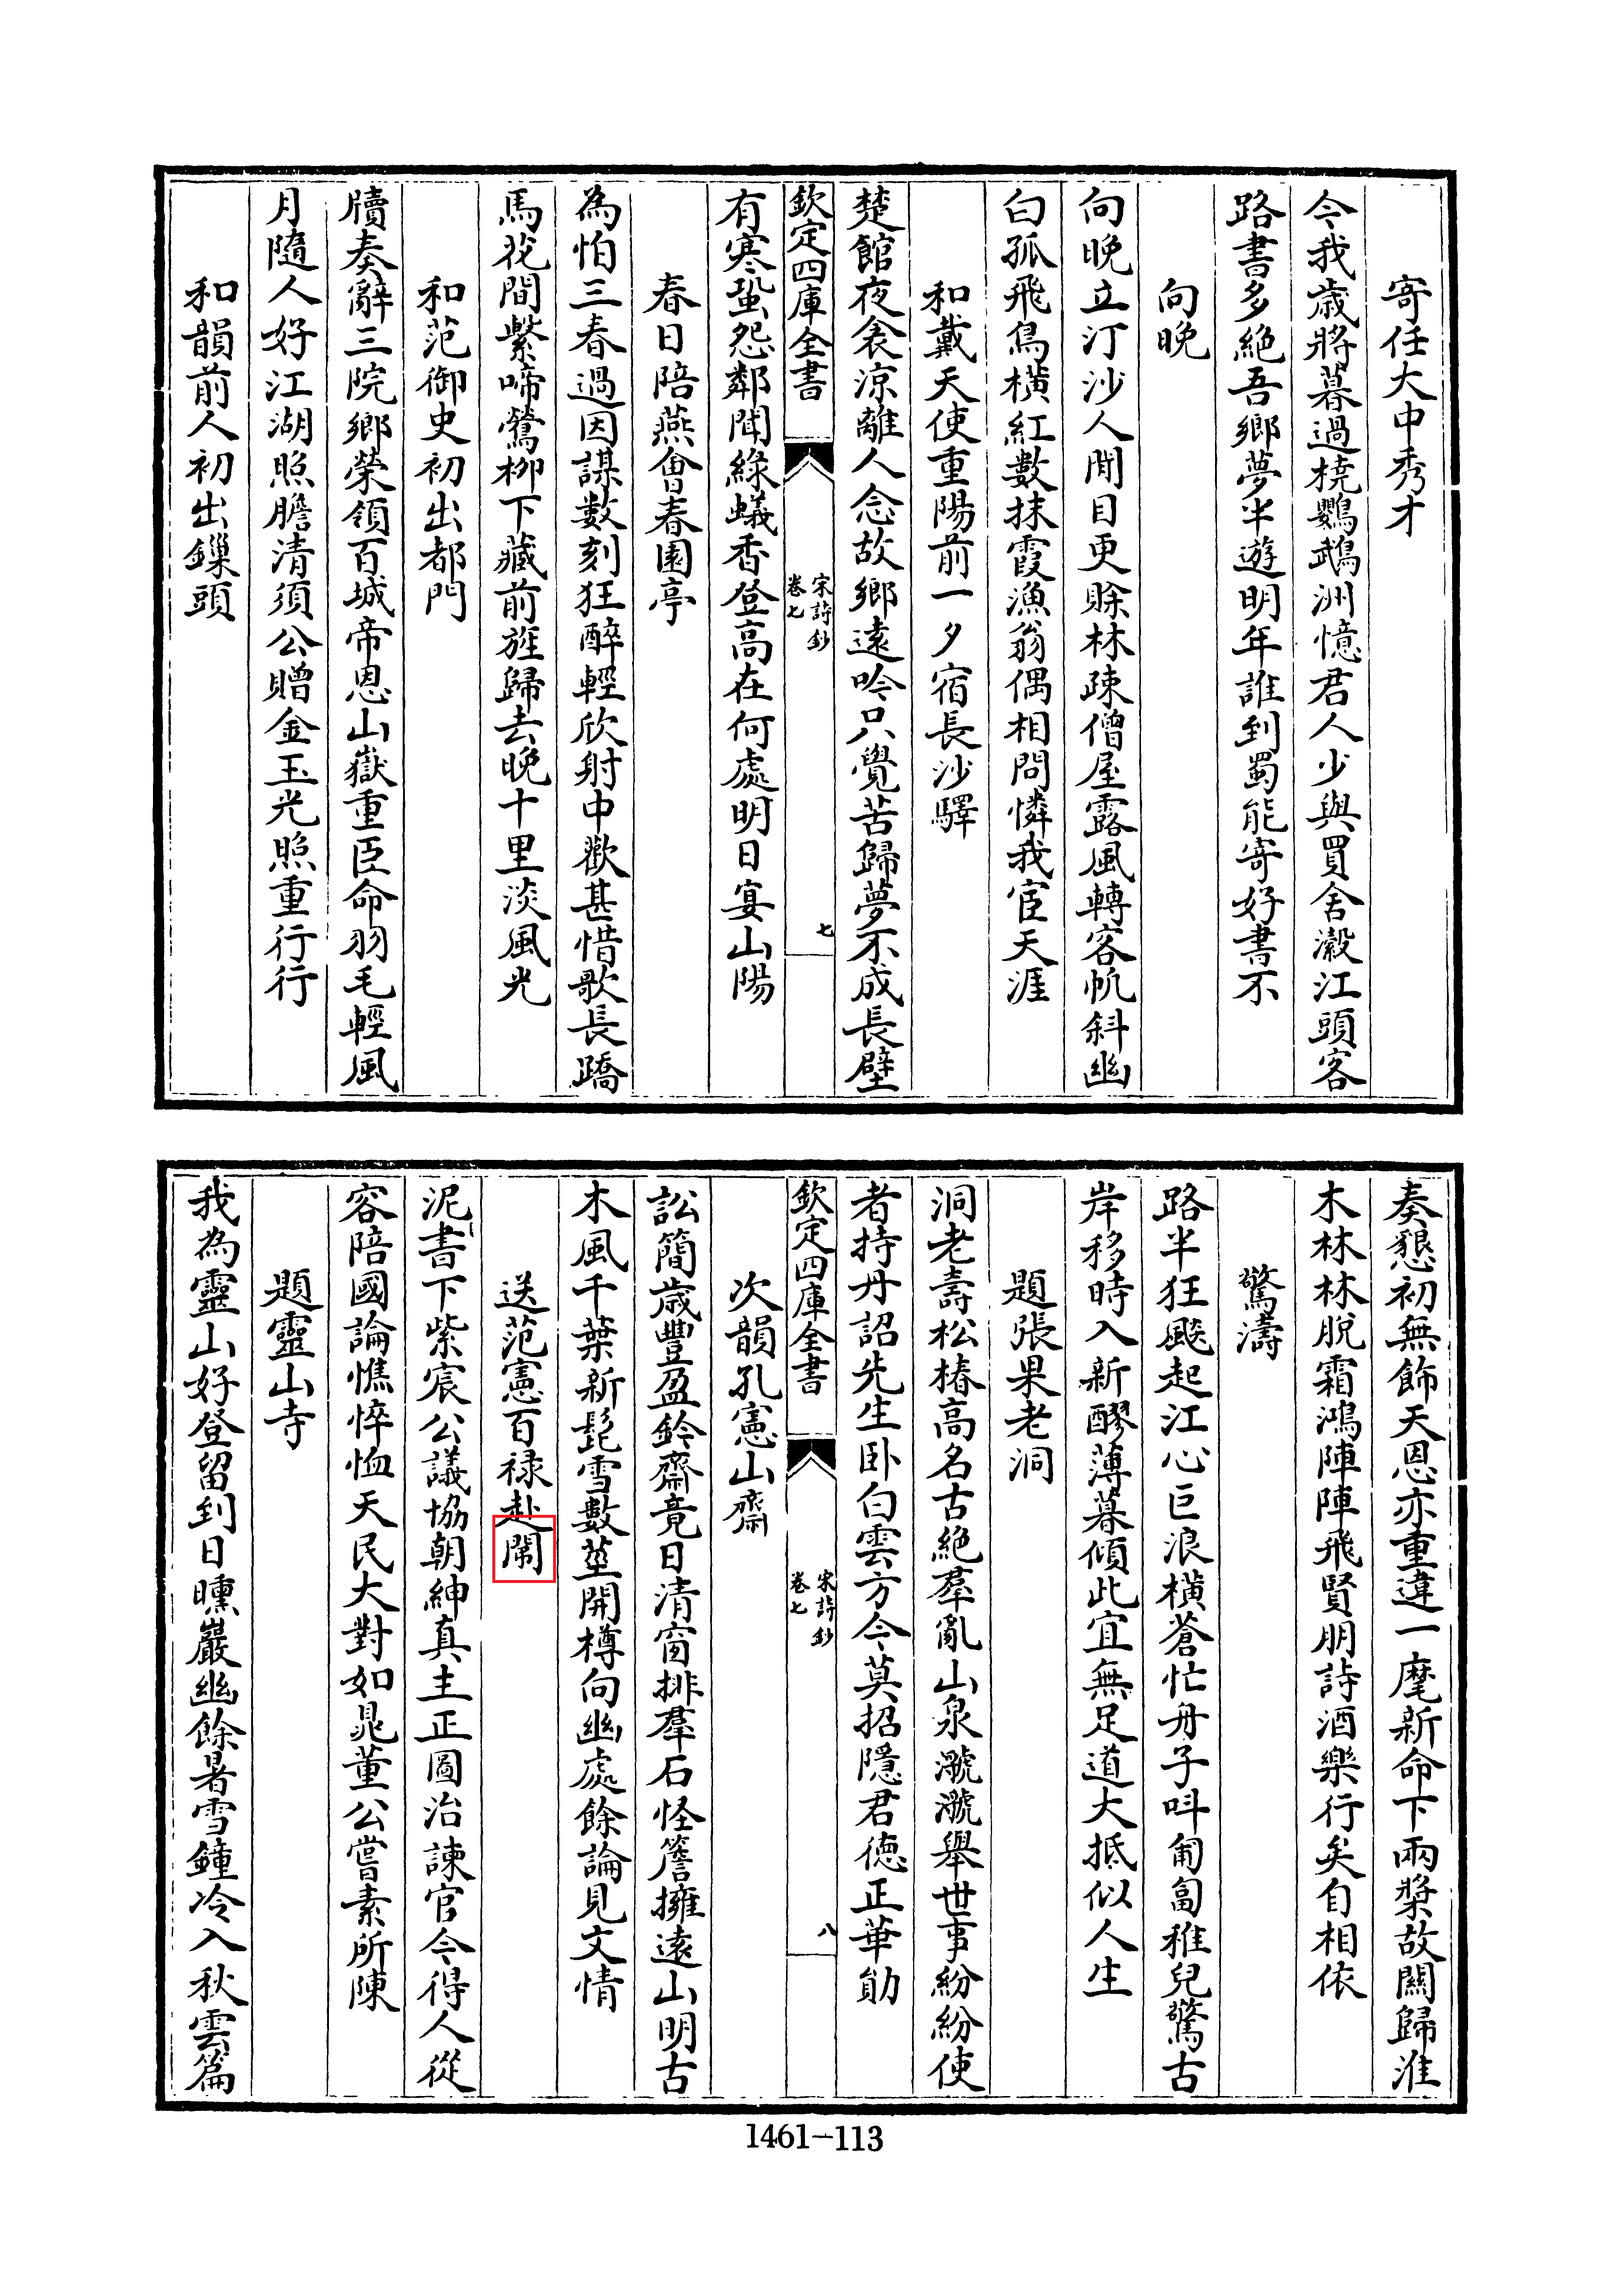 寄任大中秀才
今我歳將暮過橈鸚鵡洲憶君人少與買舍瀫江頭客
路書多絶吾鄉夢半遊明年誰到蜀能寄好書不
向晚
向晚立汀沙人閒目更賒林疎僧屋露風轉客帆斜幽
白孤飛鳥橫紅數抹霞漁翁偶相問憐我宦天涯
和戴天使重陽前一夕宿長沙驛
楚館夜衾凉離人念故鄉遠吟只覺苦歸夢不成長壁
欽定四庫全書
宋詩鈔
卷七
七
有寒蛩怨鄰聞綠蟻香登高在何處明日宴山陽
春日陪燕會春園亭
為怕三春過因謀數刻狂醉輕欣射中歡甚惜歌長蹻
馬花間繫啼鶯栁下藏前旌歸去晚十里淡風光
和范御史初出都門
牘奏辭三院鄉榮領百城帝恩山嶽重臣命羽毛輕風
月隨人好江湖照膽清須公贈金玉光照重行行
和韻前人初出鏁頭
奏懇初無飾天恩亦重違一麾新命下兩槳故闗歸淮
木林林脱霜鴻陣陣飛賢朋詩酒樂行矣自相依
驚濤
路半狂颷起江心巨浪橫蒼忙舟子呌匍匐稚兒驚古
岸移時入新醪薄暮傾此宜無足道大抵似人生
題張果老洞
洞老壽松椿高名古絶羣亂山泉㶁㶁舉世事紛紛使
者持丹詔先生卧白雲方今莫招隱君德正華勛
欽定四庫全書
宋詩鈔
卷七
八
次韻孔憲山齋
訟簡歳豐盈鈴齋竟日清窗排羣石怪簷擁遠山明古
木風千葉新髭雪數莖開樽向幽處餘論見文情
送范憲百禄赴閙
泥書下紫宸公議協朝紳真主正圖治諫官今得人從
容陪國論憔悴恤天民大對如晁董公嘗素所陳
題靈山寺
我為靈山好登留到日曛巖幽餘暑雪鐘冷入秋雲篇
1461-113